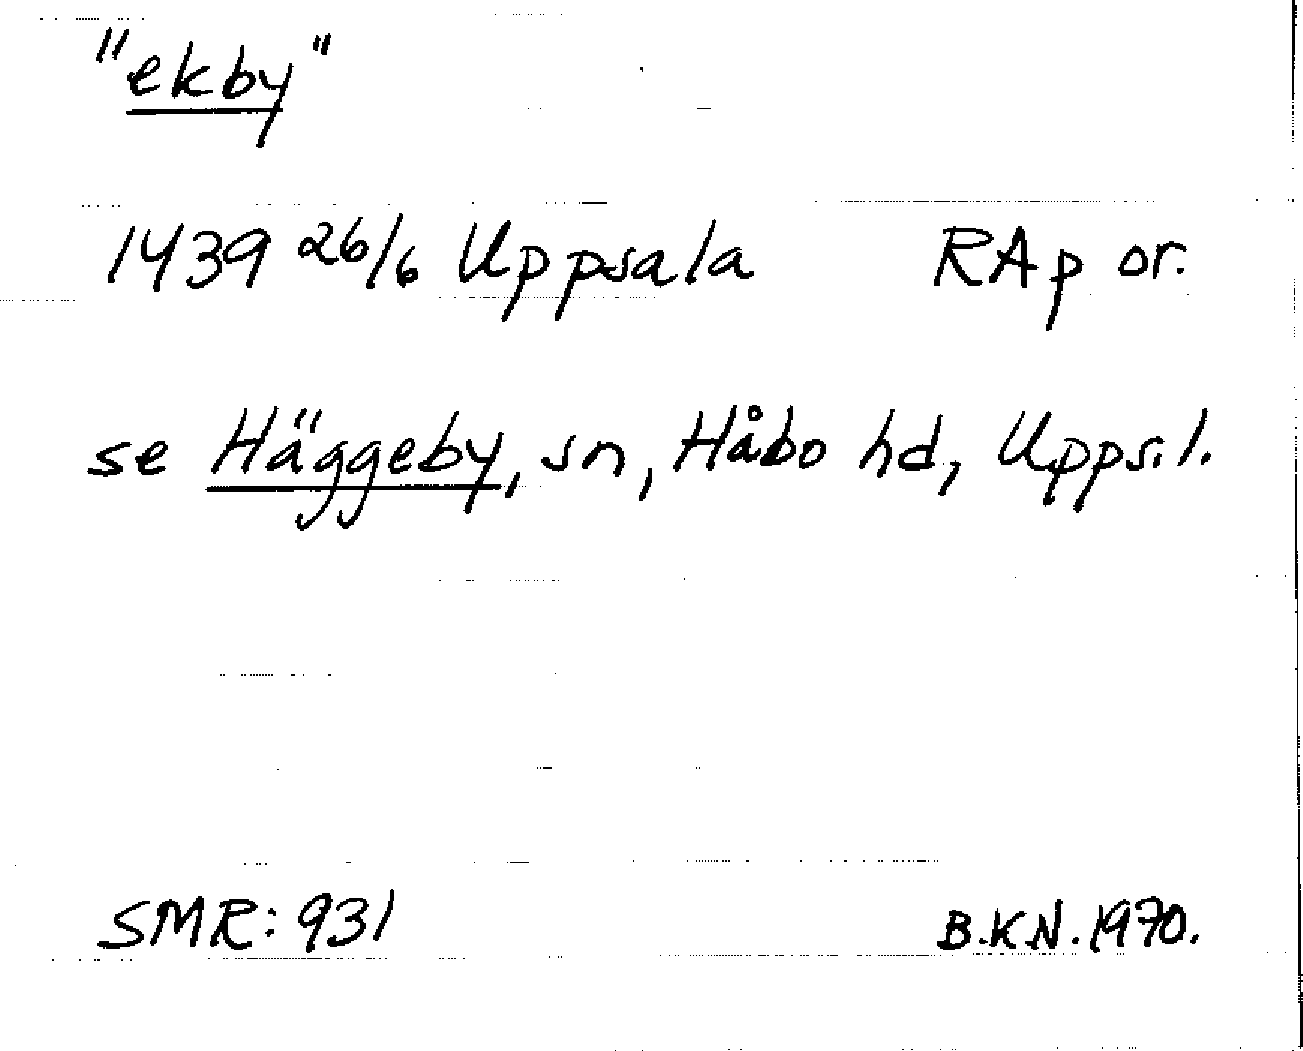 "ekby"
1439 26/6 Uppsala RAp or.
se Häggeby, sn, Håbo hd, Upps.l.
SMR: 931 B.K.N. 1970.